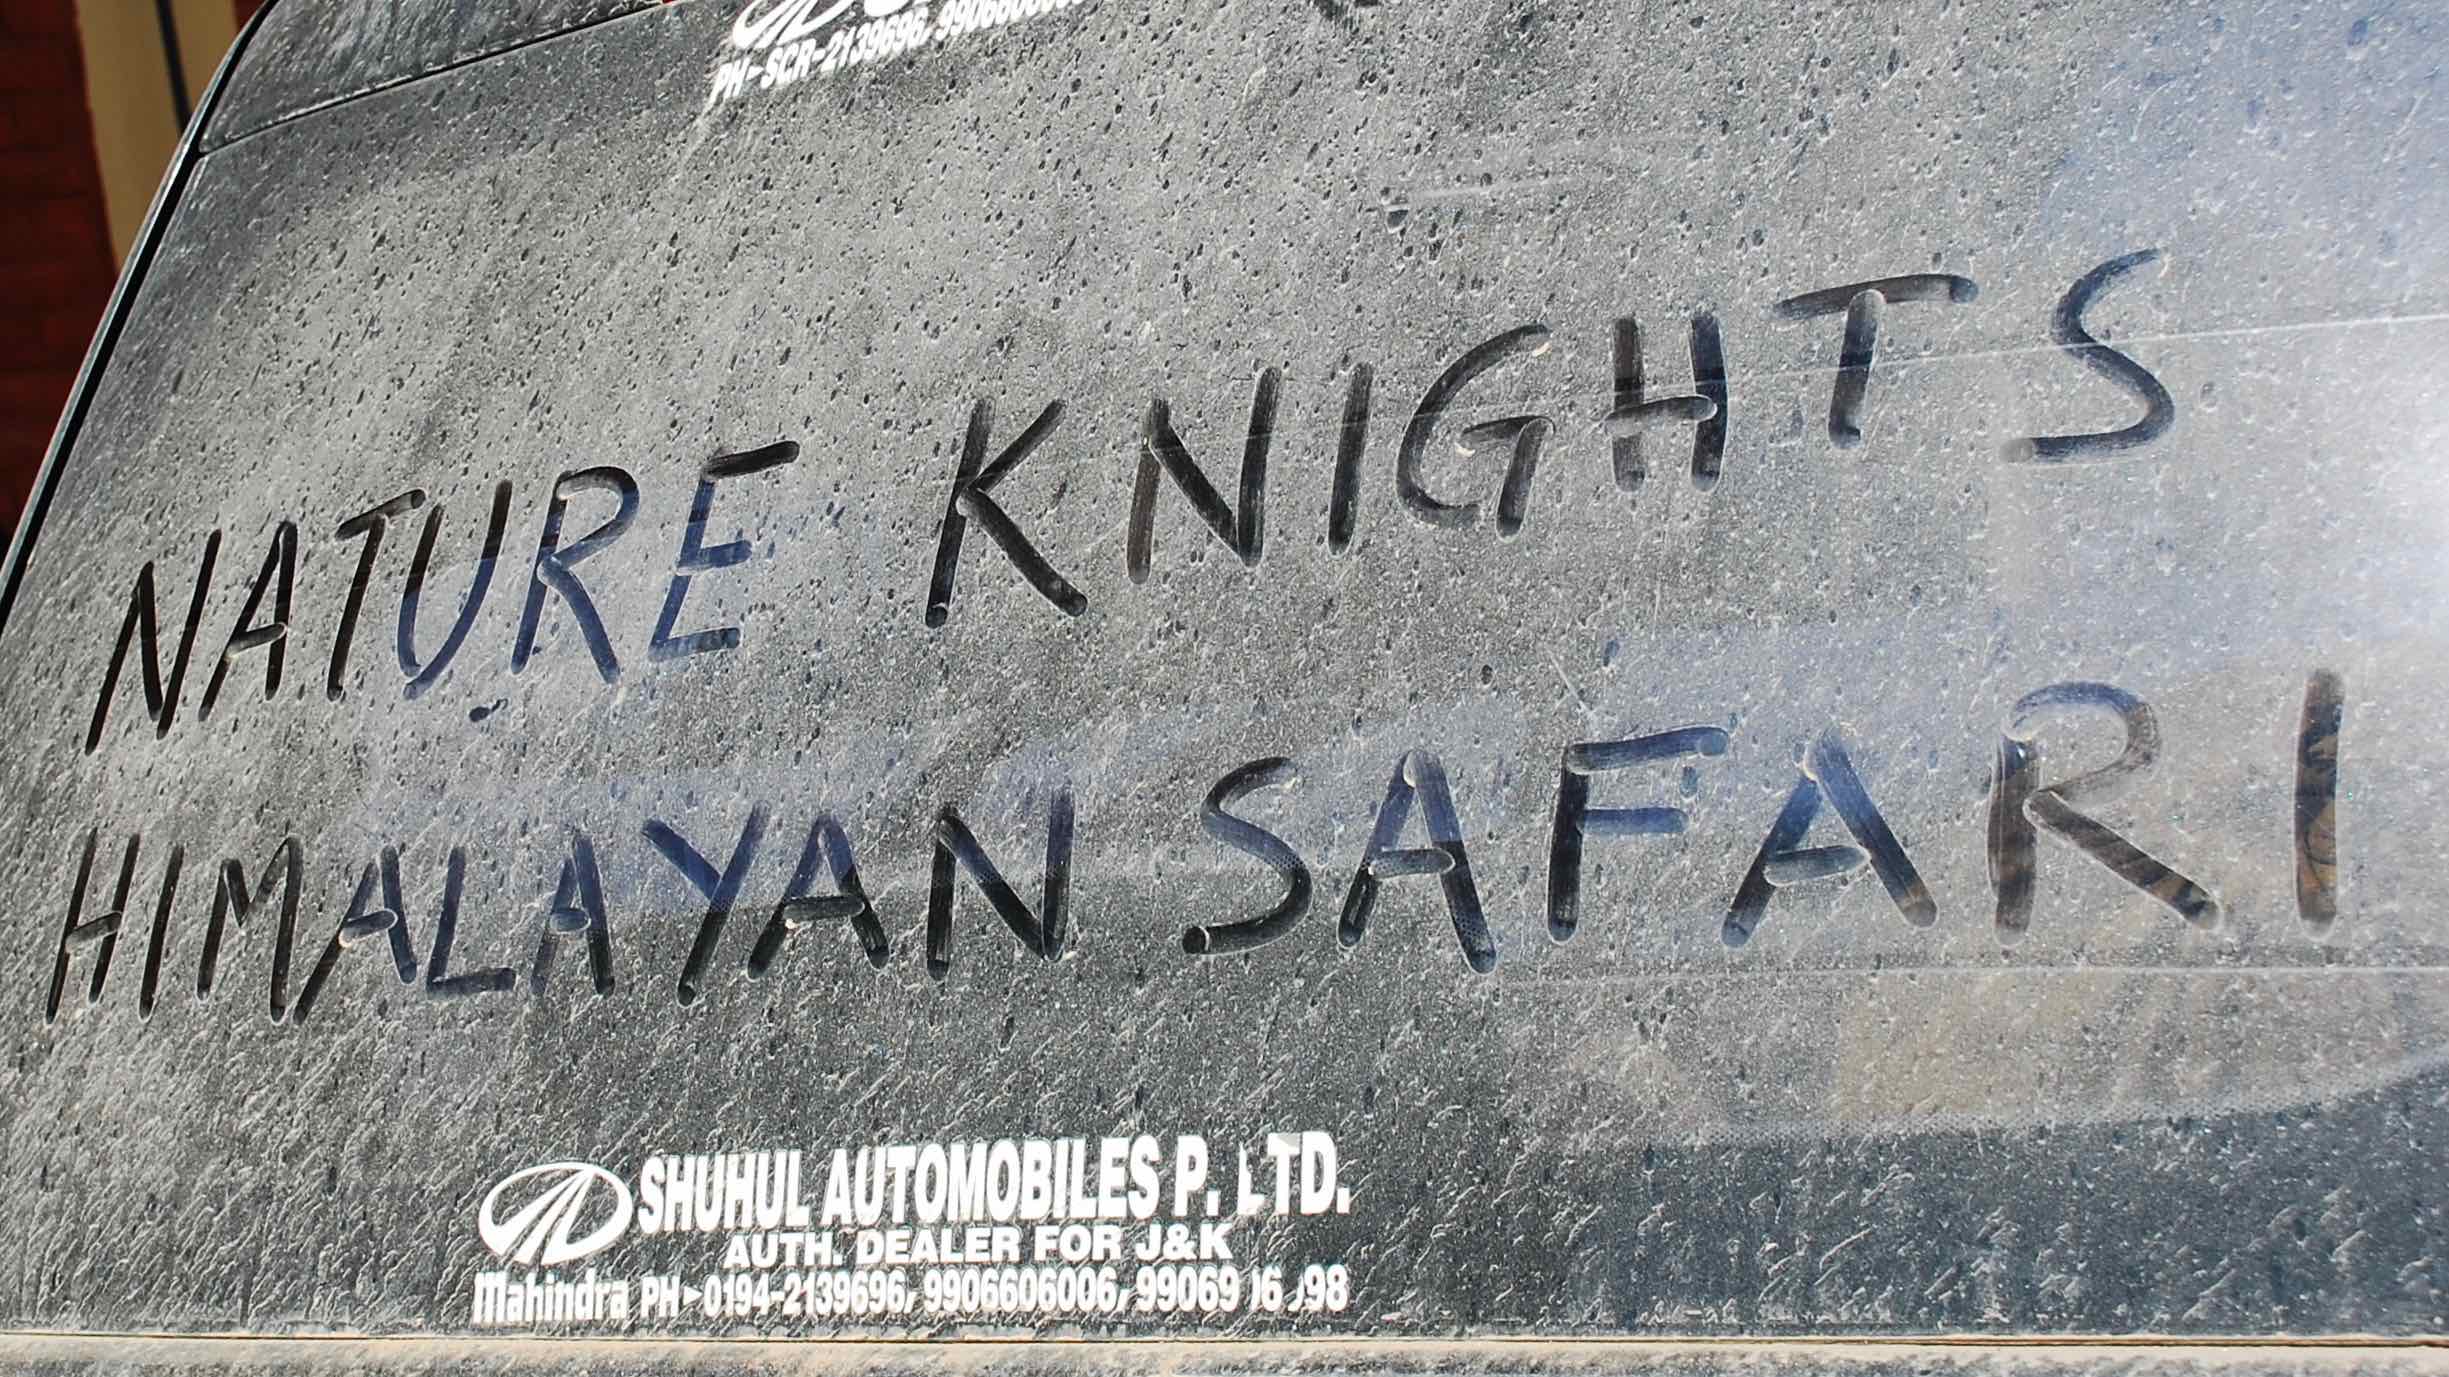 PH-SCR-2139696,
NATURE KNIGHTS
HIMALAYAN SAFARI
SHUHUL AUTOMOBILES P. LTD.
AUTH. DEALER FOR J&K
Mahindra PH►0194-2139696, 9906606006,